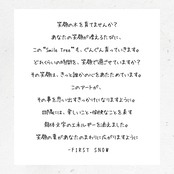 笑顔の木を育てませんか？
あなたの笑顔が増えるたびに、
この"Smile Tree"も、ぐんぐん育っていきます。
どれくらいの時間を、笑顔で過ごせていますか？
その笑顔は、きっと誰かの心をあたためています。
このアートが、
その事を思い出すきっかけになりますように。
口角には、楽しいこと・愉快なことを表す
顔体文字のエネルギーを添えました。
笑顔の葉があなたのまわりに広がりますように
-FIRST SNOW